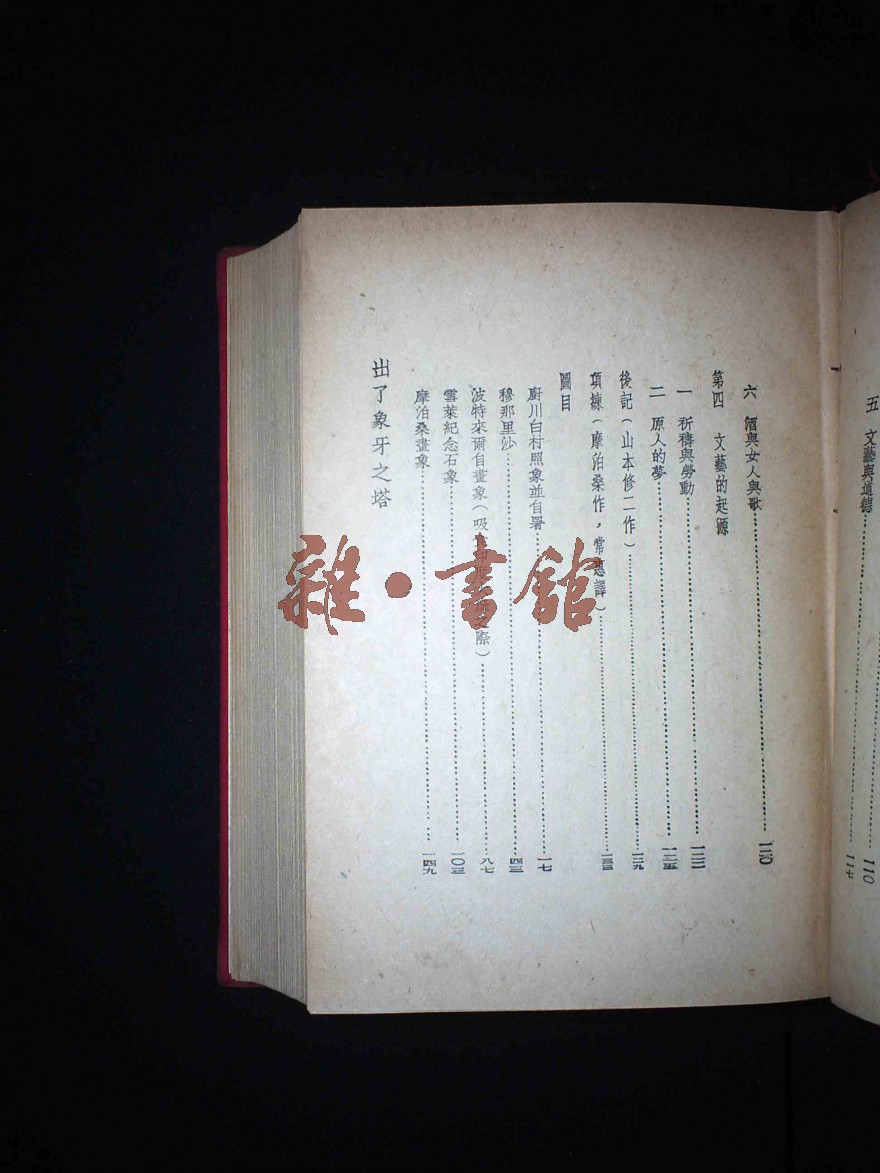 五　文藝與道德……一一七
六　酒與女人與歌……一二〇
第四　文藝的起源
一　祈禱與勞動……一二二
二　原人的夢……一二五
後記（山本修二作）……一二九
項鍊（摩泊桑作，常惠譯）……一三三
圖目
廚川白村照象並自署……一七
穆那里沙……四三
波特來爾自畫象（吸之際）……八七
雪萊紀念石象……一〇三
摩泊桑畫象……一四九
出了象牙之塔
雜·書館